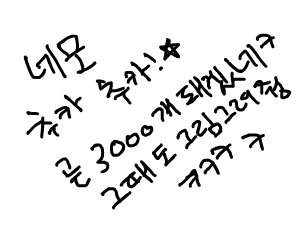 네모
추카 추카!☆
곧 3000개 돼겠네ㅋ
그때도 그림그려
ㅋㅋㅋ ㅋ